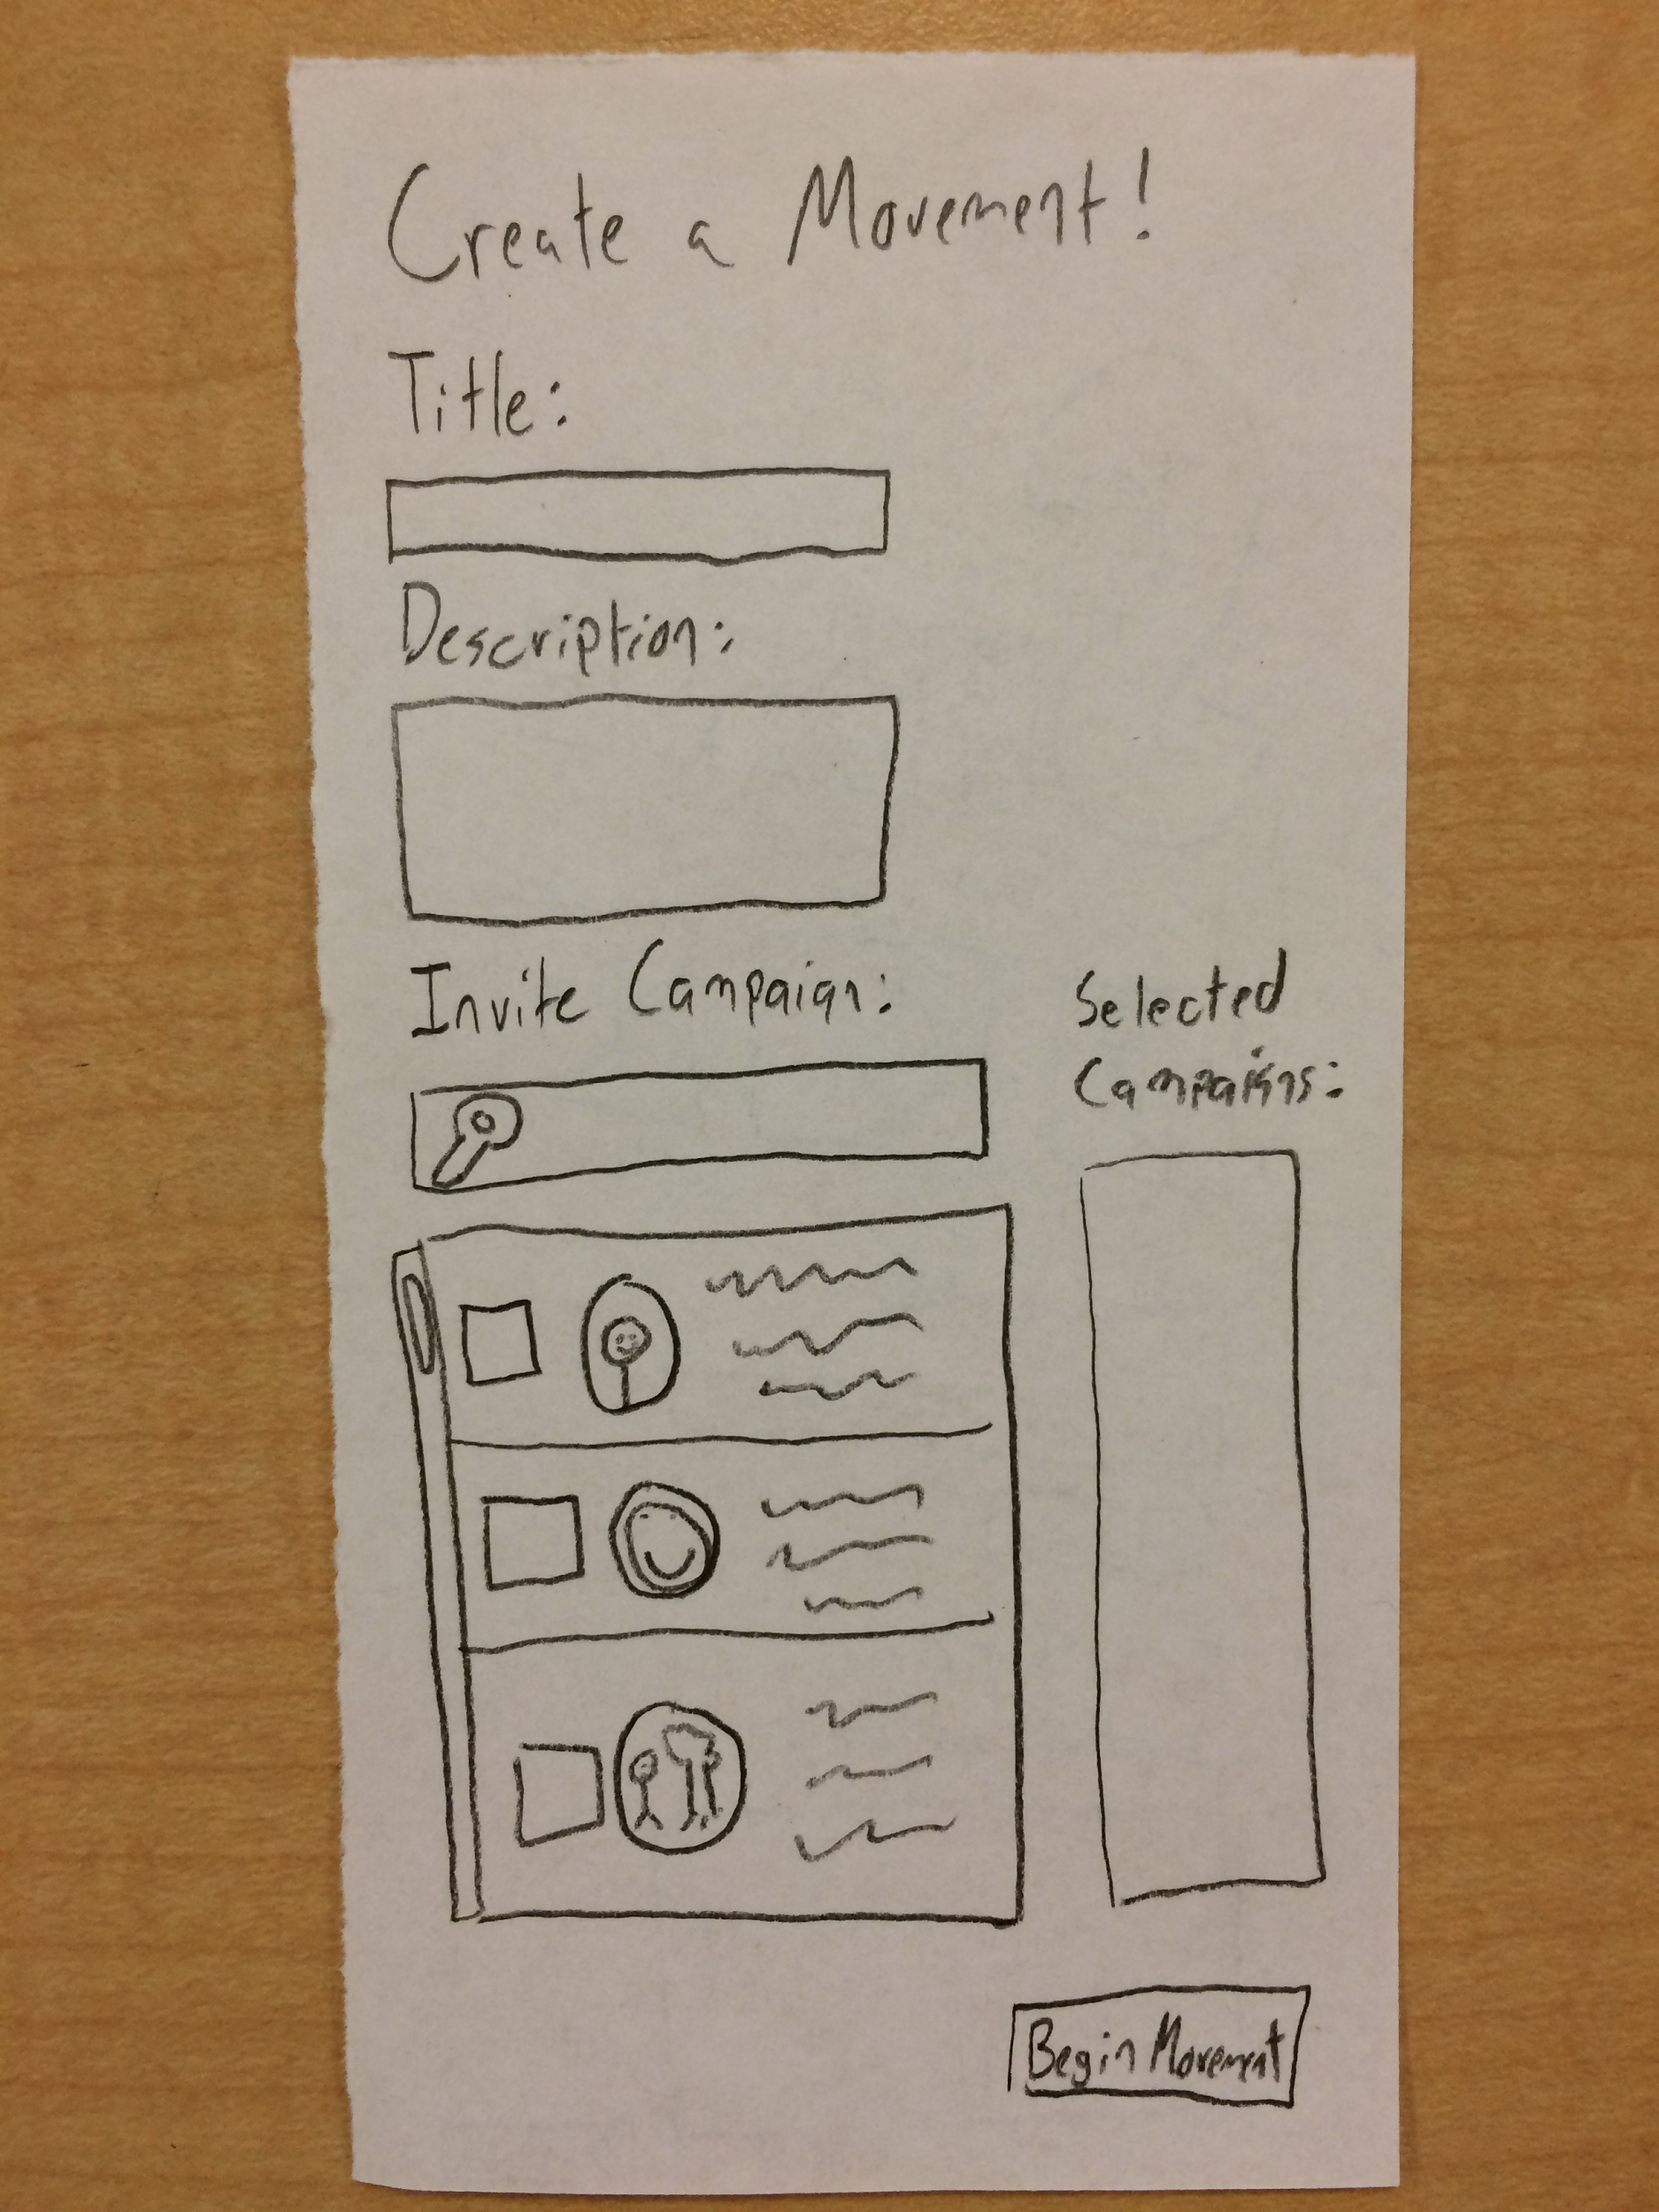 Create a Movement!
Title:
Description:
Invite Campaign:
Selected
Campaigns:
Begin Movement